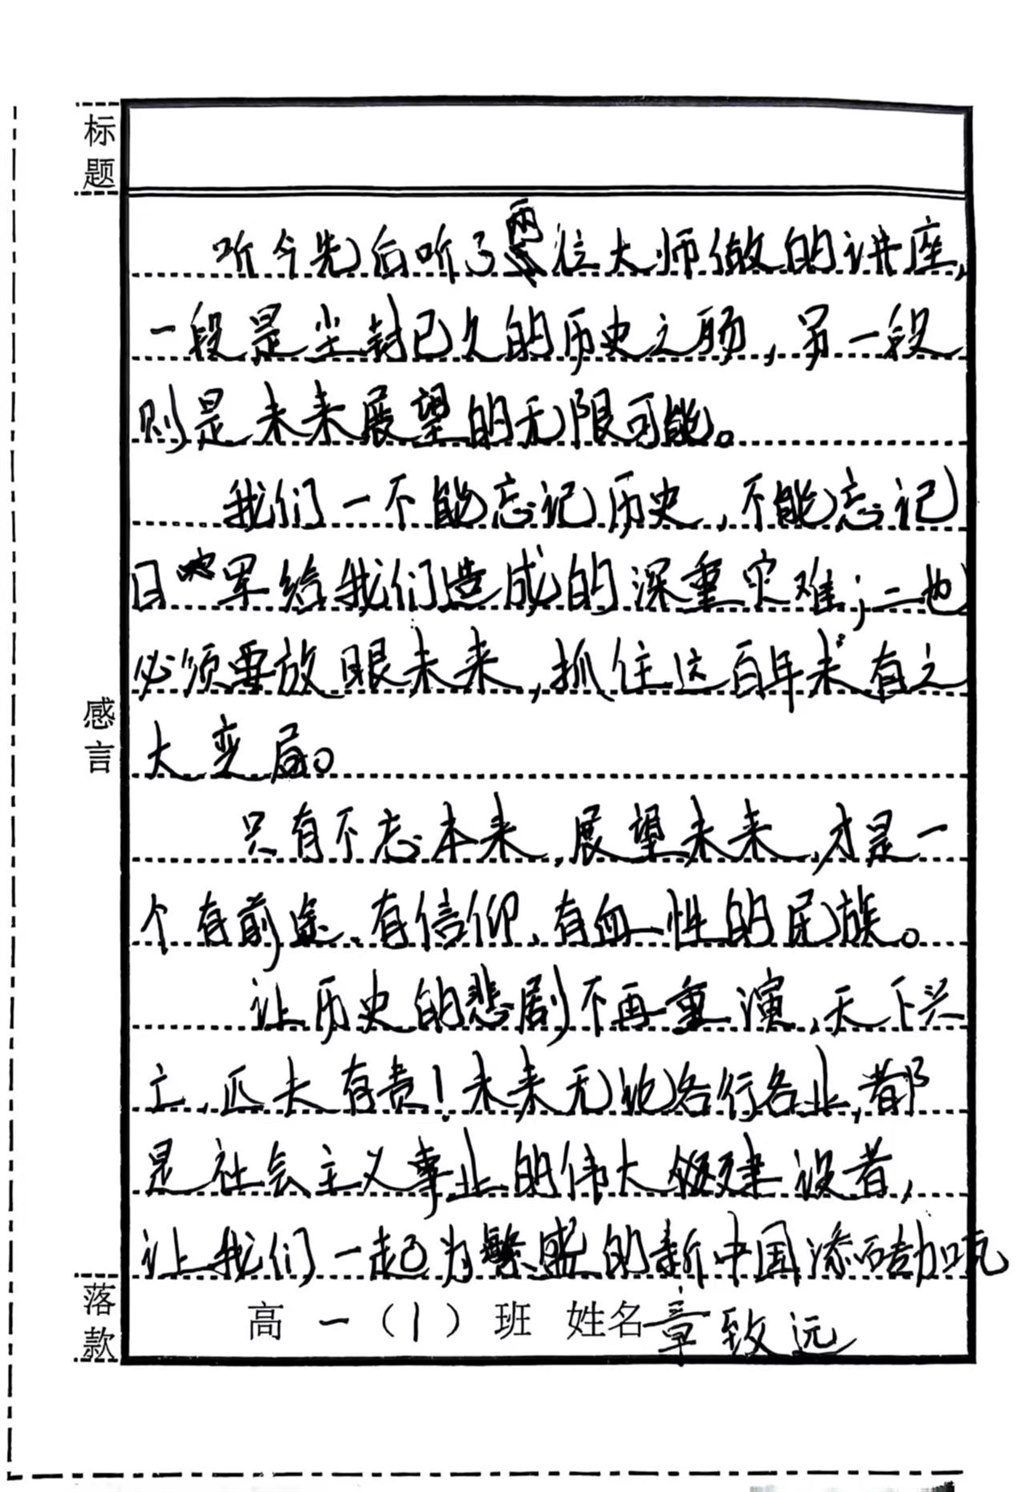 标题
听今先后听了两位大师做的讲座，
一段是尘封已久的历史之殇，另一段
则是未来展望的无限可能。
我们一不能忘记历史，不能忘记
日军给我们造成的深重灾难；二也
必须要放眼未来，抓住这百年未有之
大变局。
感言
只有不忘本来，展望未来，才是一
个有前途、有信仰、有血性的民族。
让历史的悲剧不再重演，天下兴
亡，匹夫有责！未来无论各行各业，都
是社会主义事业的伟大建设者，
让我们一起为繁盛的新中国添砖
落款
高一（1）班 姓名 章致远